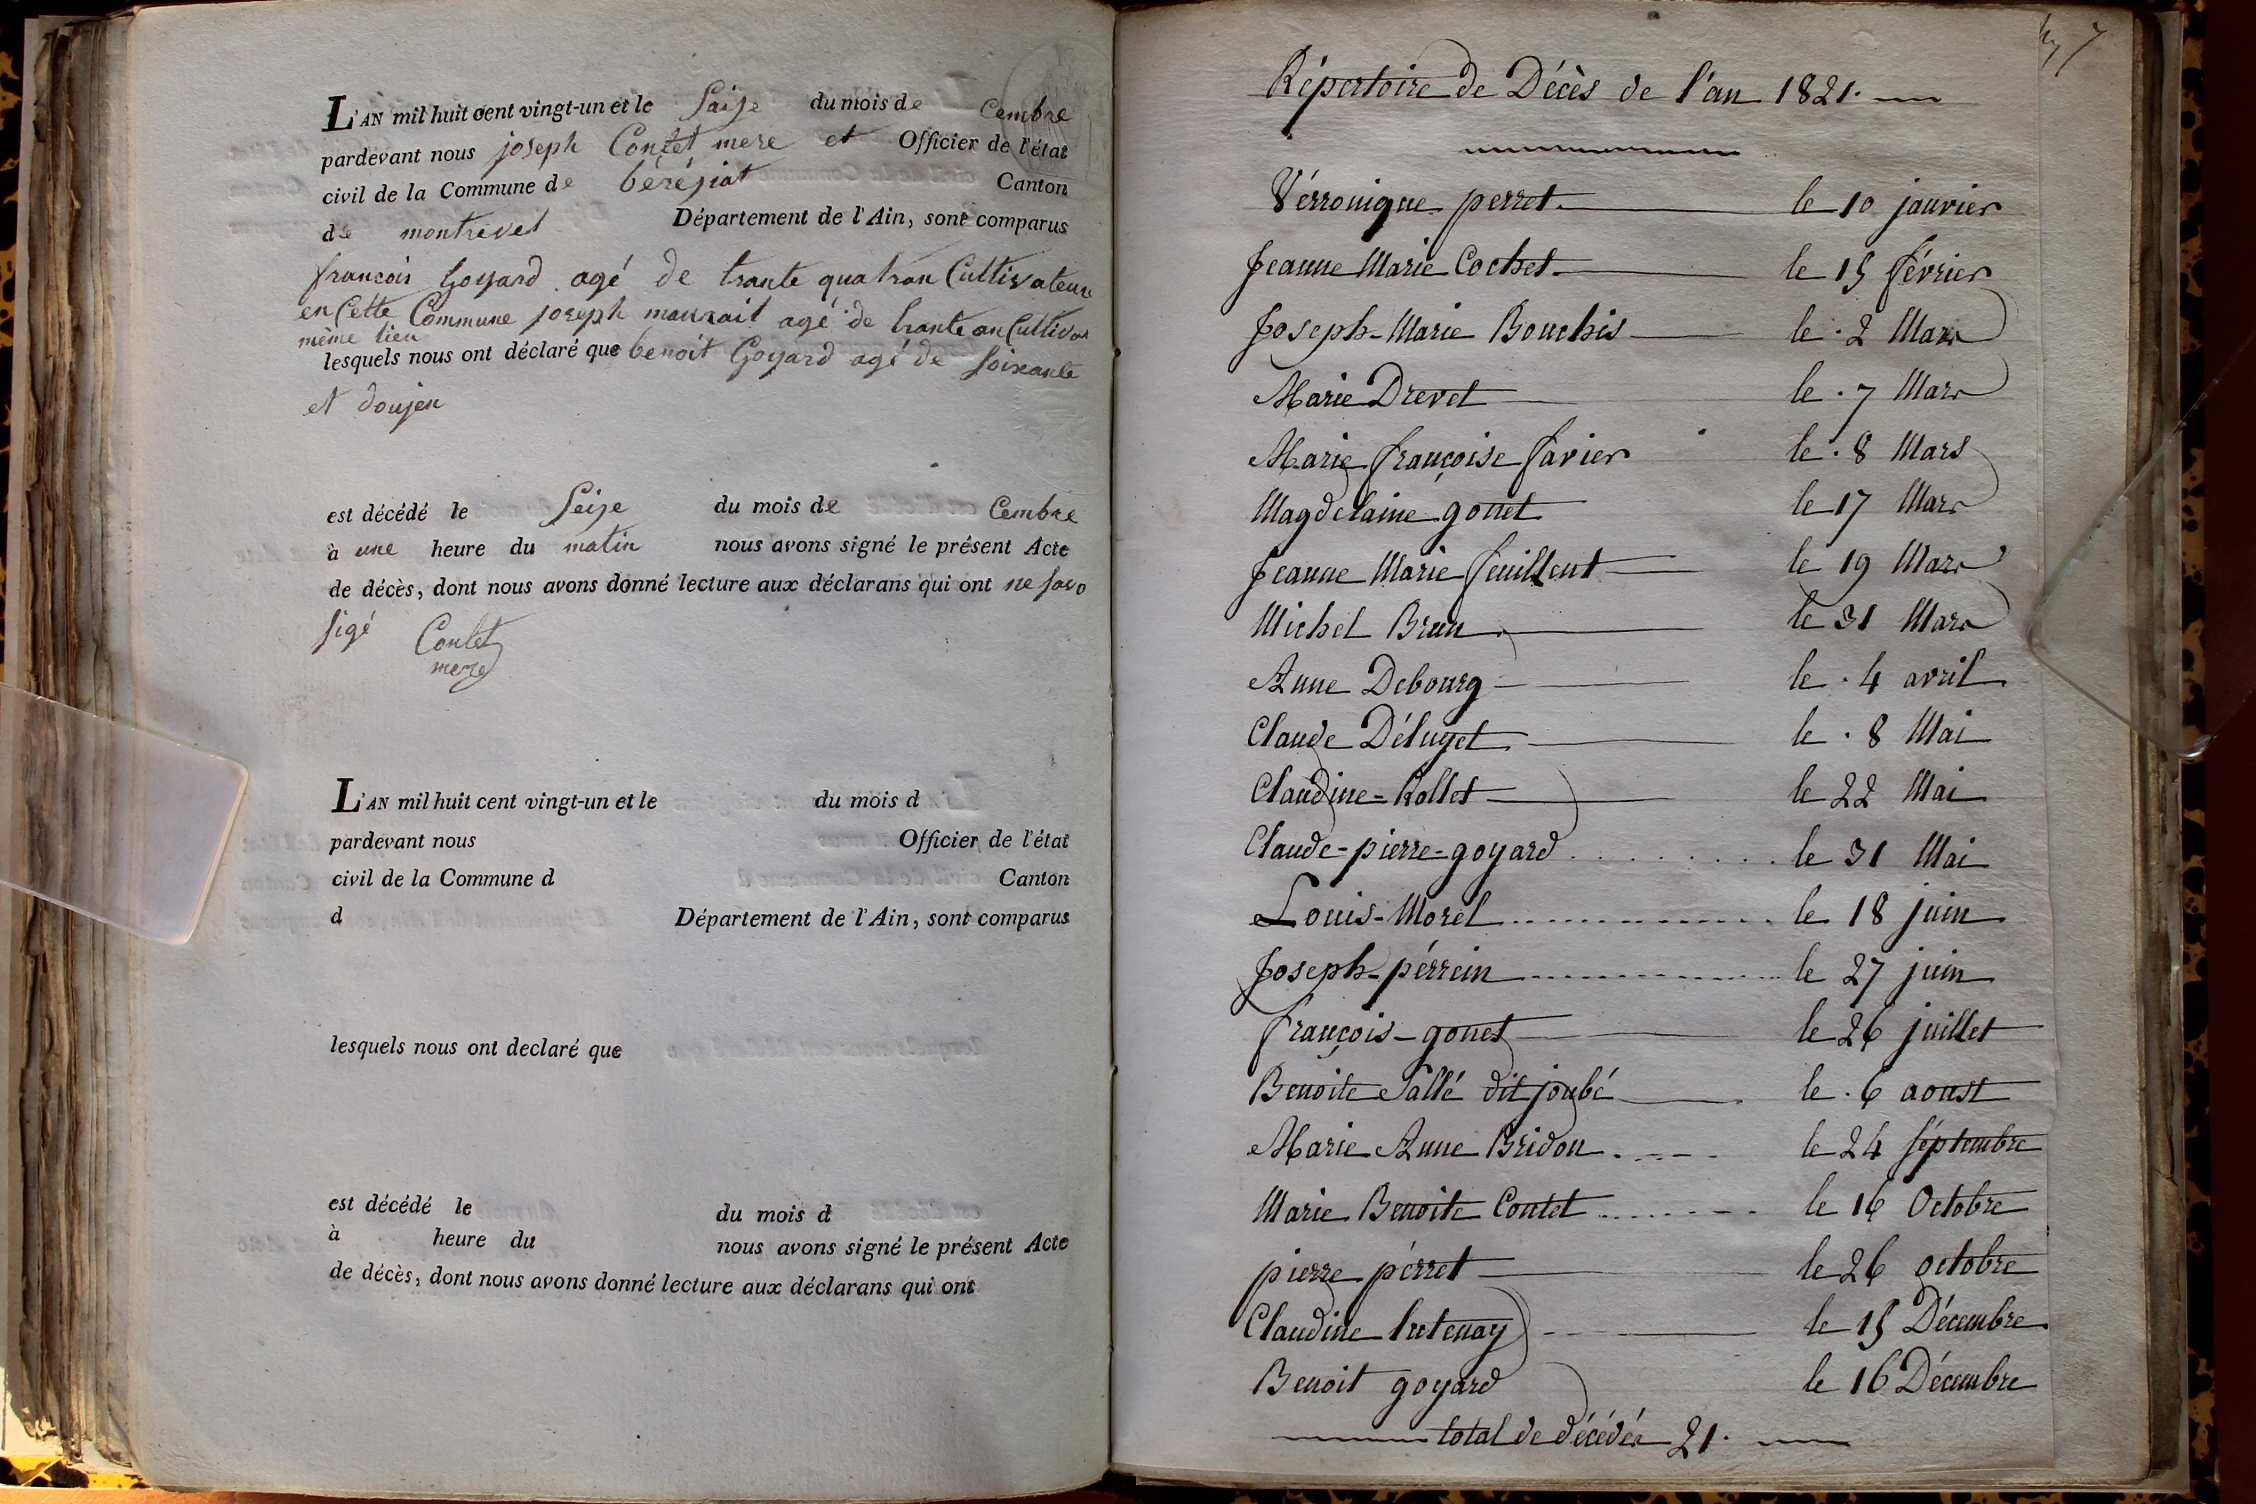 L'AN mil huit cent vingt-un et le Saise du mois de Cembre
pardevant nous joseph Contet mere et Officier de l'état
civil de la Commune de béréjiat Canton
de montrevel Département de l'Ain, sont comparus
francois Goyard agé de trante quatran Cultivateur
en Cette Commune joseph agé de trante an Cultivat
même lieu
lesquels nous ont déclaré que benoit Goyard agé de soixante
et doujen
est décédé le Seize du mois de Cembre
à une heure du matin nous avons signé le présent Acte
de décès, dont nous avons donné lecture aux déclarans qui ont ne savo
sigé Contet
mere
L'AN mil huit cent vingt-un et le du mois d
pardevant nous Officier de l'état
civil de la Commune d Canton
d Département de l'Ain, sont comparus
lesquels nous ont declaré que
est décédé le du mois d
à heure du nous avons signé le présent Acte
de décès, dont nous avons donné lecture aux déclarans qui ont
7
Répertoire de Décès de l'an 1821.
Vérronique perret le 10 janvier
Jeanne Marie Cochet le 15 février
Joseph-Marie Bouchis le 2 Mars
Marie Drevet le 7 Mars
Marie françoise favier le 8 Mars
Magdelaine gonet le 17 Mars
Jeanne Marie feuillent le 19 Mars
Michel Brun le 31 Mars
Anne Debourg le 4 avril
Claude Déluyet le 8 Mai
Claudine-Rollet le 22 Mai
Claude-pierre-goyard le 31 Mai
Louis-Morel le 18 juin
Joseph-pérrein le 27 juin
françois-gonet le 26 juillet
Benoite Sallé dit joubé le 6 aoust
Marie Anne Bridon le 24 séptembre
Marie Benoite Contet le 16 Octobre
pierre pérret le 26 octobre
Claudine lutenay le 15 Décembre
Benoit goyard le 16 Décembre
total de décédés 21.